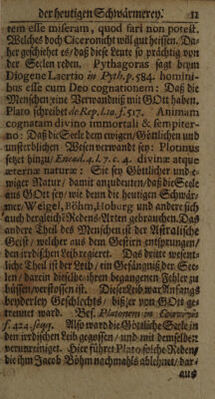 der heutigen Schwärmerey. 11
tem esse miseram, quod fari non potest.
Welches doch Ciceroni nicht will gut heissen. Da-
her geschiehet es / daß diese Leute so prächtig von
der Seelen reden. Pythagoras sagt beym
Diogene Laertio in Pyth. p. 584. homini-
bus esse cum Deo cognationem: Daß die
Menschen eine Verwandniß mit GOtt haben.
Plato schreibet de Rep. l. 10. f. 517. Animam
cognatam divino immortali & sempiter-
no: Daß die Seele dem ewigen / Göttlichen und
unsterblichen Wesen verwandt sey: Plotinus
setzet hinzu / Ennead. 4. l. 7. c. 4. divinæ atque
æternæ naturæ: Sie sey Göttlicher und e-
wiger Natur / damit anzudeuten / daß die Seele
aus GOtt sey / wie denn die heutigen Schwär-
mer, Weigel, Böhm, Hoburg und andere sich
auch dergleichen Redens-Arten gebrauchen. Das
andere Theil des Menschen ist der Astralische
Geist / welcher aus dem Gestirn entsprungen /
den irrdischen Leib regieret. Das dritte wesent-
liche Theil ist der Leib / ein Gefängniß der See-
len / darein dieselbe ihren begangenen Fehler zu
büssen / verstossen ist. Dieser Leib war Anfangs
beyderley Geschlechts / biß er von GOtt ge-
trennet ward. Bes. Platonem in Convivio
f. 424. seqq. Also ward die Göttliche Seele in
den irrdischen Leib gegossen / und mit demselben
verunreiniget. Hier führet Plato solche Reden,
die ihm Jacob Böhm nachmahls ablehnet / dar-
aus